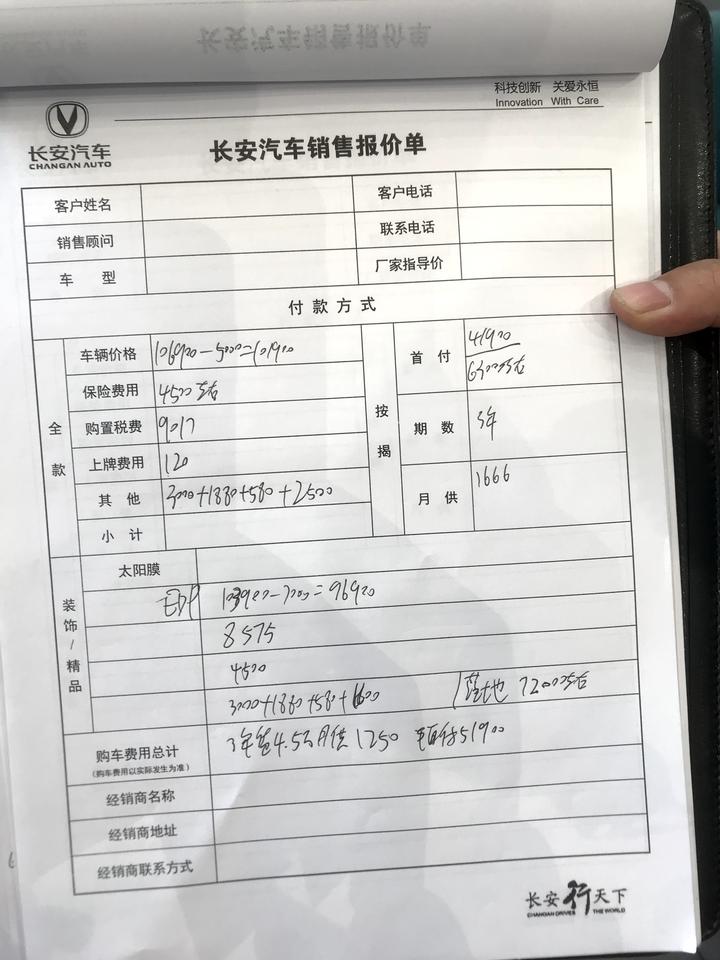 科技创新 关爱永恒
Innovation With Care
长安汽车
CHANGAN AUTO
长安汽车销售报价单
客户姓名 客户电话
销售顾问 联系电话
车 型 厂家指导价
付款方式
全款
车辆价格 106900-5000=101900
保险费用 4500左右
购置税费 9017
上牌费用 120
其 他 3000+1880+580+2500
小 计
按揭
首 付 41900
6300左右
期 数 3年
月 供 1666
装饰/精品
太阳膜
103900-7000=96900
8575
4500
3000+1880+580+1600 落地 72000左右
购车费用总计 3年 4.5万 月供1250 首付51900
(购车费用以实际发生为准)
经销商名称
经销商地址
经销商联系方式
长安行天下
CHANGAN DRIVES THE WORLD